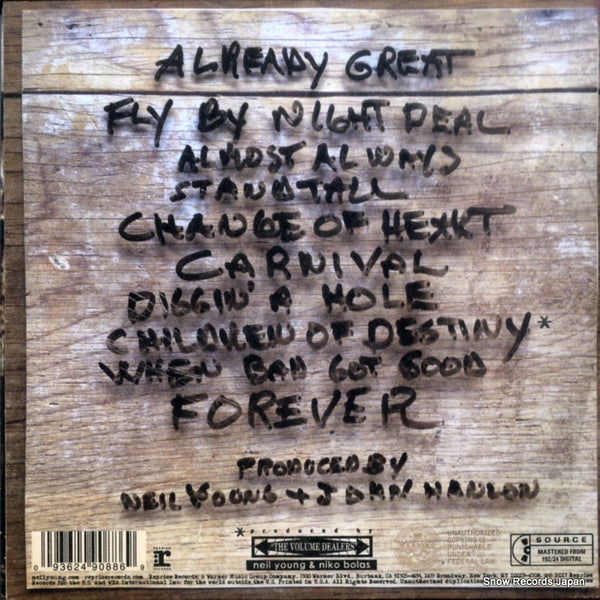 ALREADY GREAT
FLY BY NIGHT DEAL
ALMOST ALWAYS
STAND TALL
CHANGE OF HEART
CARNIVAL
DIGGIN' A HOLE
CHILDREN OF DESTINY*
WHEN BAD GOT GOOD
FOREVER
PRODUCED BY
NEIL YOUNG + JOHN HANLON
* produced by
"THE VOLUME DEALERS"
neil young & niko bolas
0 93624 90886 9
r
UNAUTHORIZED
COPYING IS
PUNISHABLE
UNDER
FEDERAL LAW
SOURCE
MASTERED FROM
192/24 DIGITAL
neilyoung.com reprisерecords.com Reprise Records, A Warner Music Group Company, 3300 Warner Blvd., Burbank,
Records for the U.S. and WEA International Inc. for the world outside the United States. Printed in U.S.A. All Rights Reserved. Unauthorized
Snow Records Japan